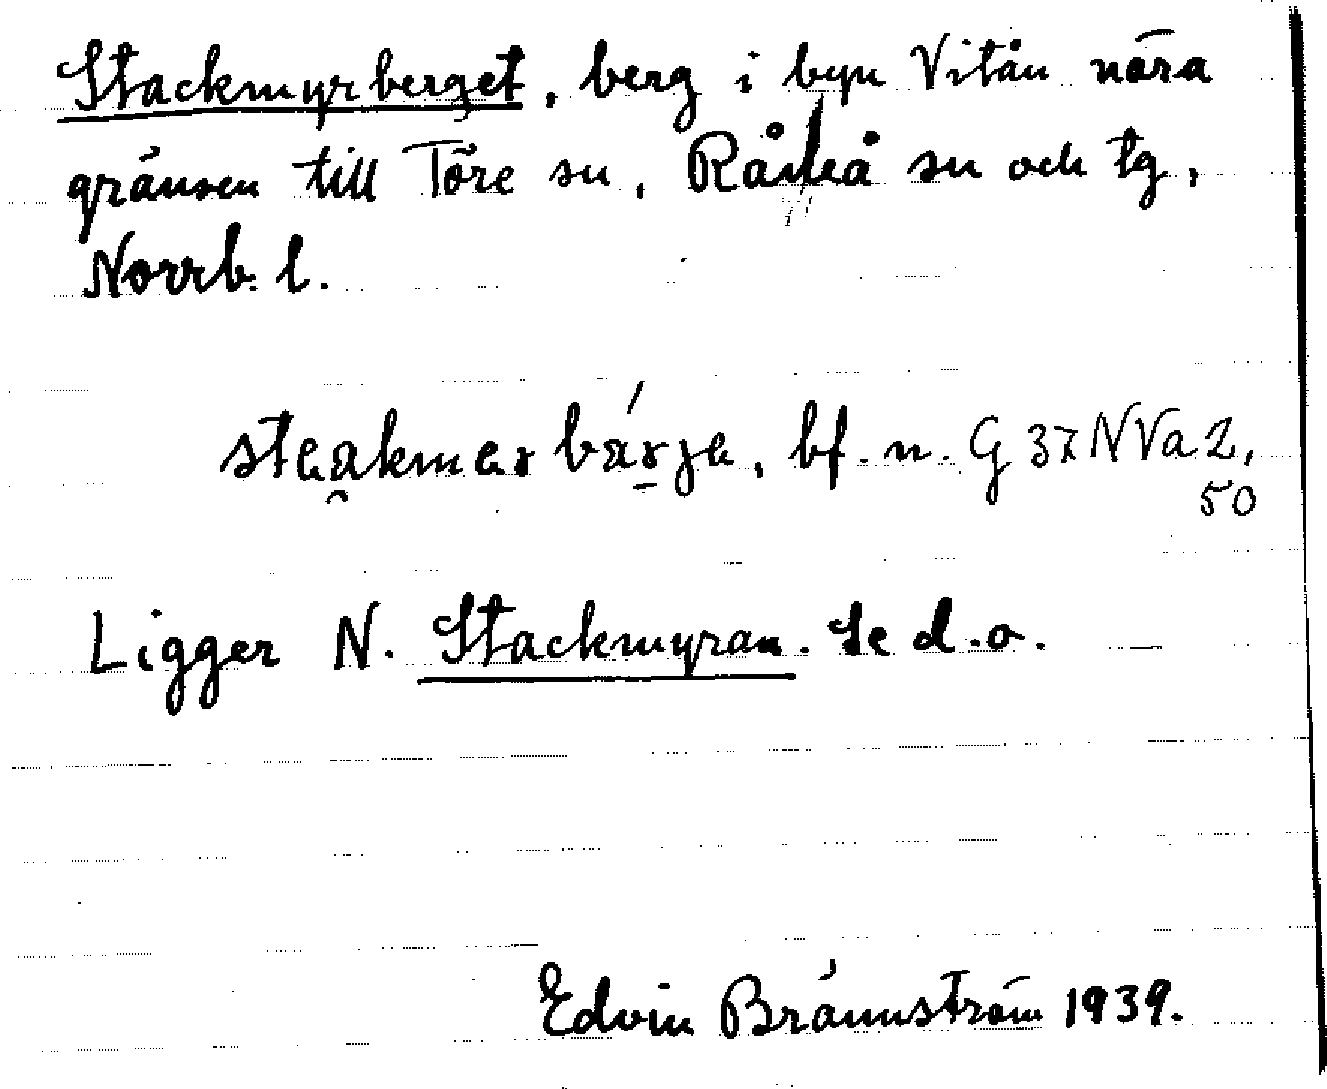 Stackmyrberget, berg i byn Vitån nära
gränsen till Töre sn, Råneå sn och tg,
Norrb. l.
bf. n. G 37 NVa 2,
50
Ligger N. Stackmyran. Se d.o.
Edvin Brännström 1939.